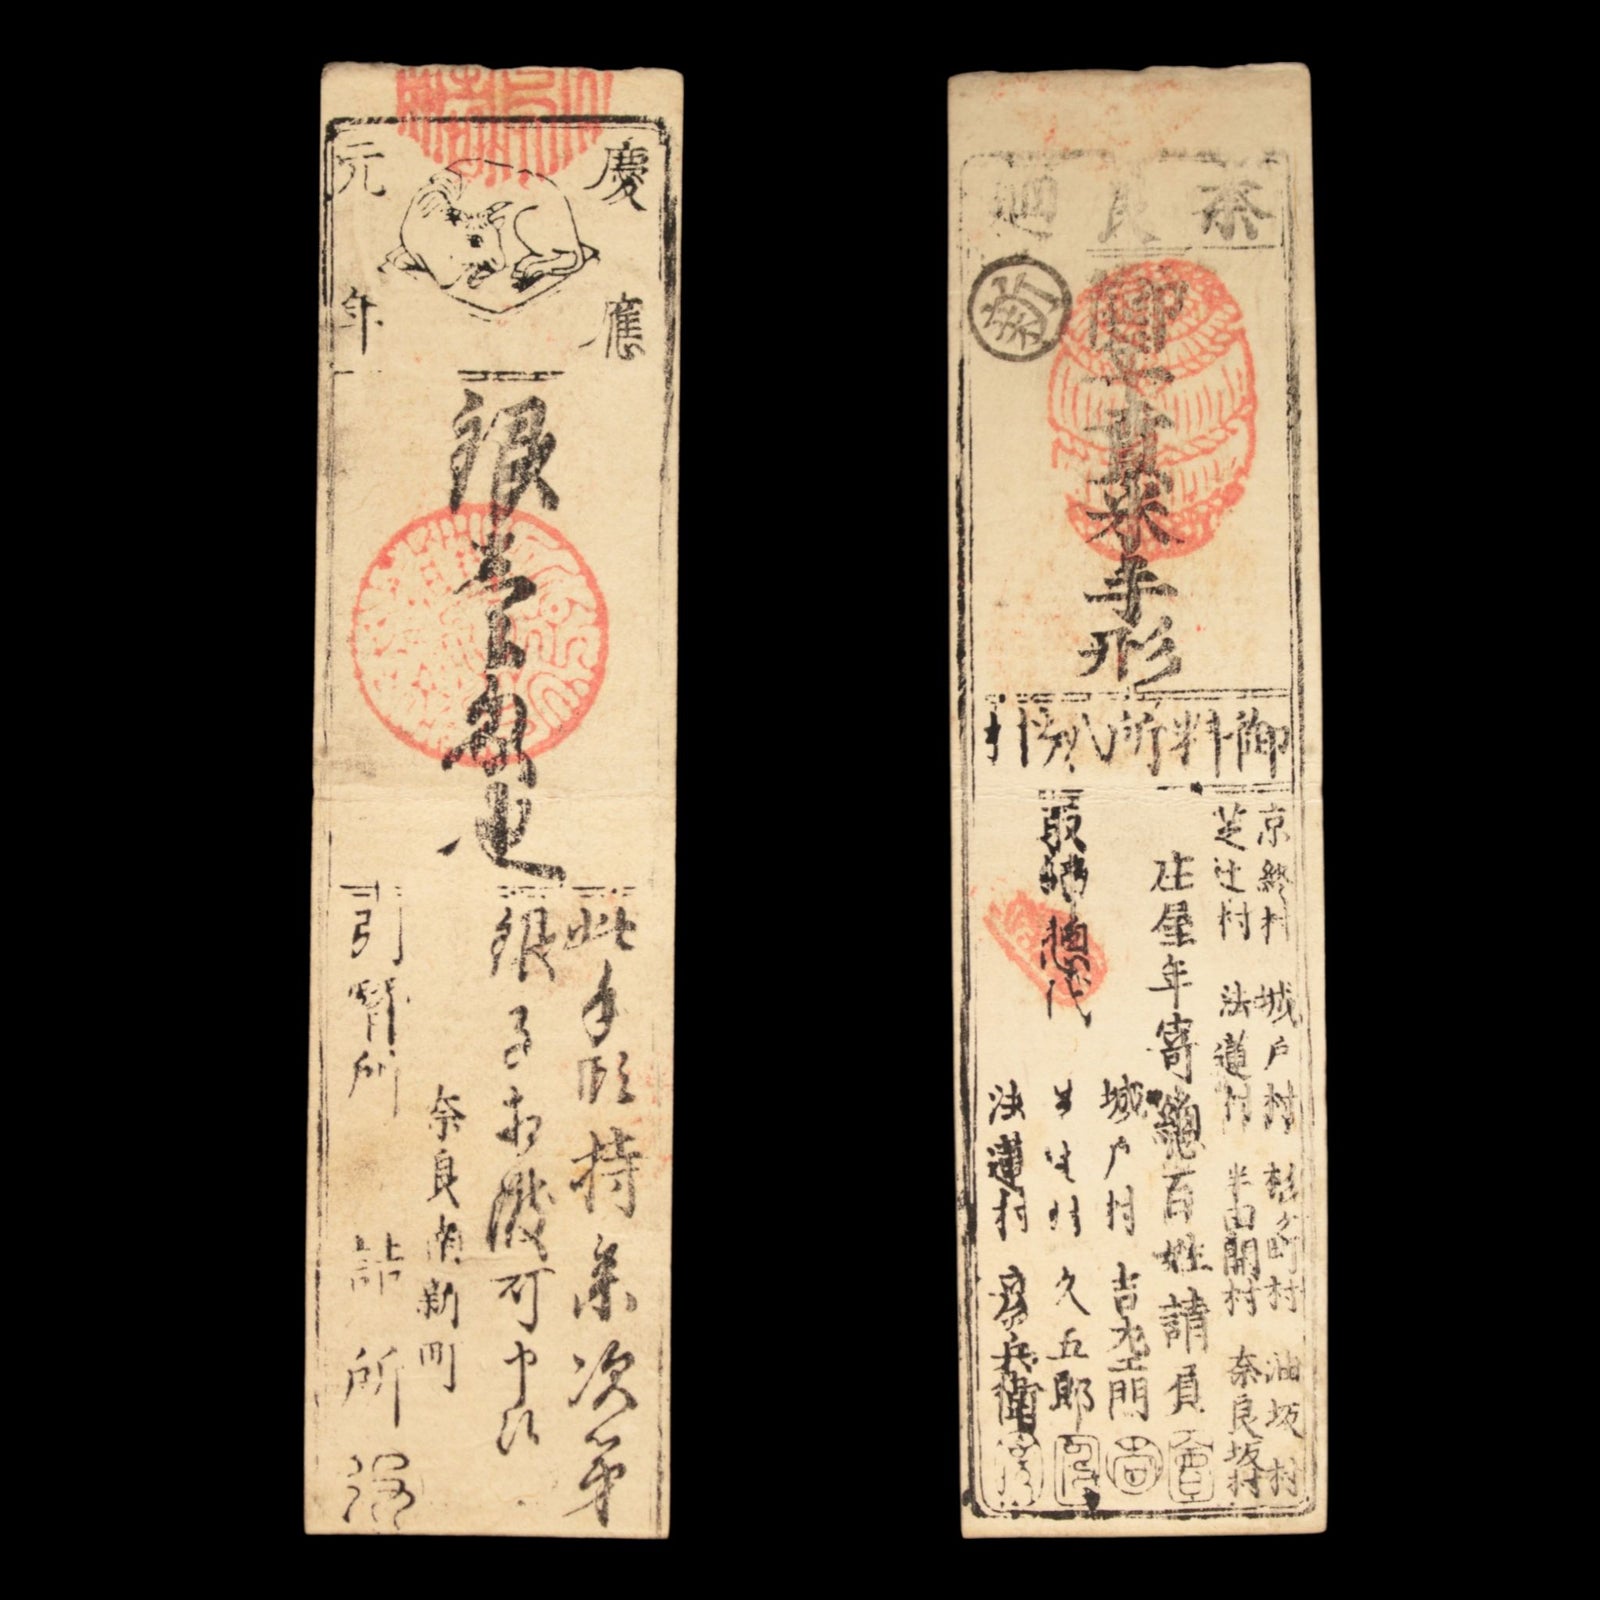 慶應
元年
銀壹匁也
此手形持参次第
銀子相渡可申候
奈良南新町
引替所
詰所
奈良廻
新
御年貢米手形
御料所八ヶ村引
京終村 城戸村 杉ヶ町村 油坂村
芝辻村 法蓮村 半田開村 奈良坂村
庄屋年寄惣百姓請負
取締惣代
城戸村 吉左エ門
芝辻村 久五郎
法蓮村 彦兵衛